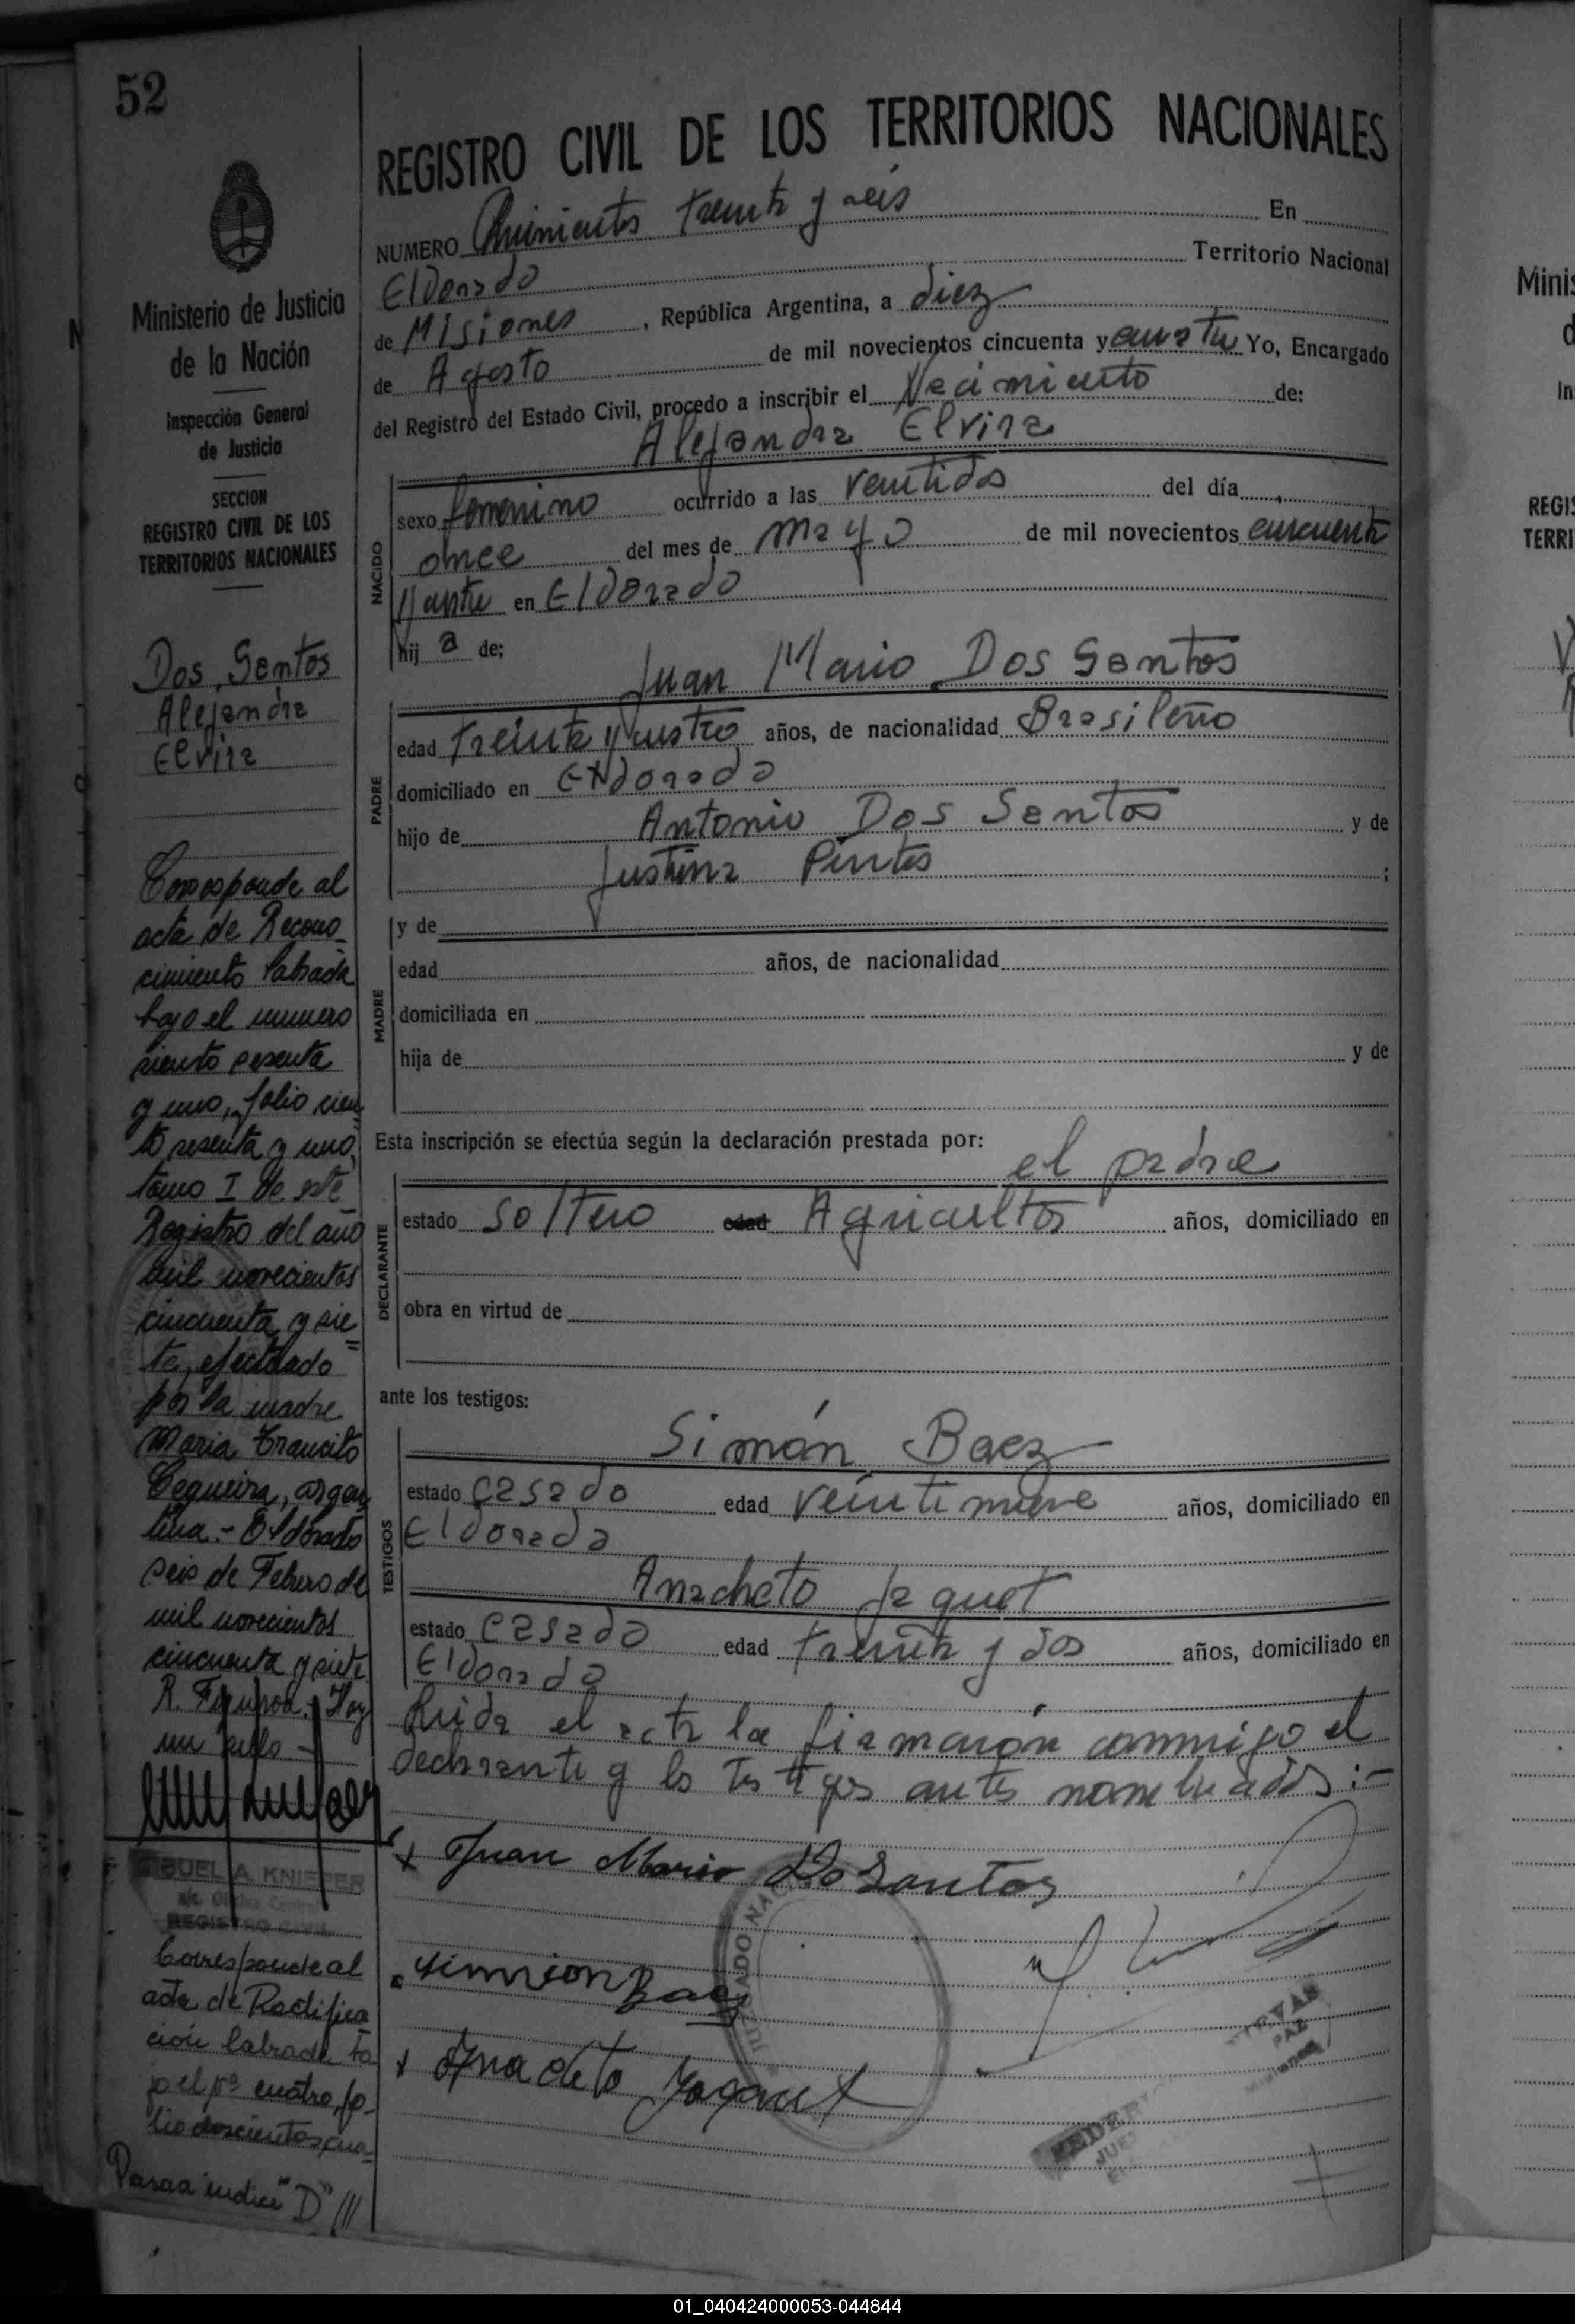 52
Ministerio de Justicia
de la Nación
Inspección General
de Justicia
SECCION
REGISTRO CIVIL DE LOS
TERRITORIOS NACIONALES
Dos Santos
Alejandra
Elvira
Corresponde al
acta de Recono
cimiento labrada
bajo el numero
ciento sesenta
y uno, folio cien
to sesenta y uno,
tomo I de este
Registro del año
mil novecientos
cincuenta y sie
te, efectuado
por la madre
Maria Trancito
Cequeira, argen
tina.- Eldorado
seis de Febrero de
mil novecientos
cincuenta y siete
R. Hay
un sello -
A. KNIEPER
REGISTRO CIVIL
Corresponde al
acta de Rectifica
ción labrada ba
jo el nº cuatro, fo-
lio doscientos cua-
Pasa a indice "D" ///
REGISTRO CIVIL DE LOS TERRITORIOS NACIONALES
NUMERO Quinientos treinta y seis En
ElDorado Territorio Nacional
de Misiones, República Argentina, a diez
de Agosto de mil novecientos cincuenta y cuatro Yo, Encargado
del Registro del Estado Civil, procedo a inscribir el Nacimiento de:
Alejandra Elvira
NACIDO
sexo femenino ocurrido a las veintidos del día
once del mes de mayo de mil novecientos cincuenta
y cuatro en ElDorado
hij a de;
Juan Mario Dos Santos
PADRE
edad treinta y cuatro años, de nacionalidad Brasileño
domiciliado en Eldorado
hijo de Antonio Dos Santos y de
Justina Pintos ;
MADRE
y de
edad años, de nacionalidad
domiciliada en
hija de y de
Esta inscripción se efectúa según la declaración prestada por:
el padre
DECLARANTE
estado soltero edad Agricultor años, domiciliado en
obra en virtud de
ante los testigos:
TESTIGOS
Simón Baez
estado casado edad veintinueve años, domiciliado en
Eldorado
Anacleto Jaquet
estado casado edad treinta y dos años, domiciliado en
Eldorado
Leida el acta la firmaron conmigo el
declarante y los testigos antes nombrados :-
x Juan Mario Do Santos
Simeon Baez
x Anacleto Jaquet
JUZGADO
PAZ
Misiones
JUE
Minis
REGIS
TERRI
01_040424000053-044844